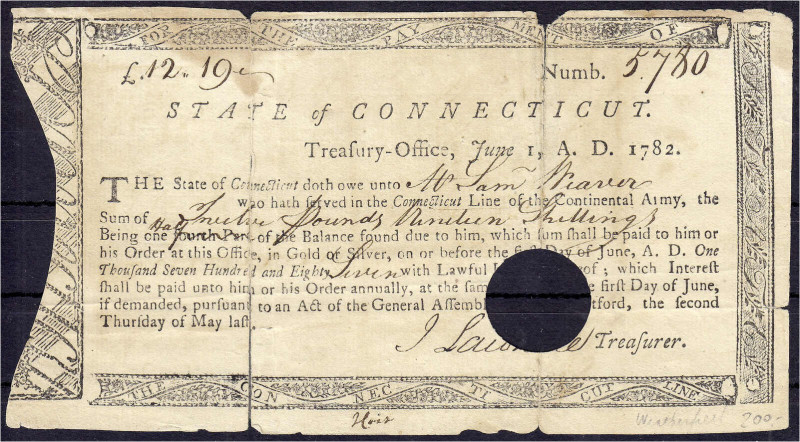 FOR THE PAYMENT OF
£.12 " 19
Numb. 5780
STATE of CONNECTICUT.
Treasury-Office, June 1, A. D. 1782.
THE State of Connecticut doth owe unto Mr Saml Weaver
who hath served in the Connecticut Line of the Continental Army, the
Sum of Twelve Pounds Nineteen Shillings
Being one fourth Part Half of the Balance found due to him, which sum shall be paid to him or
his Order at this Office, in Gold or Silver, on or before the first Day of June, A. D. One
Thousand Seven Hundred and Eighty Seven with Lawful of; which Interest
shall be paid unto him or his Order annually, at the first Day of June,
if demanded, pursuant to an Act of the General the second
Thursday of May last.
J Treasurer.
THE CONNECTICUT LINE
200-